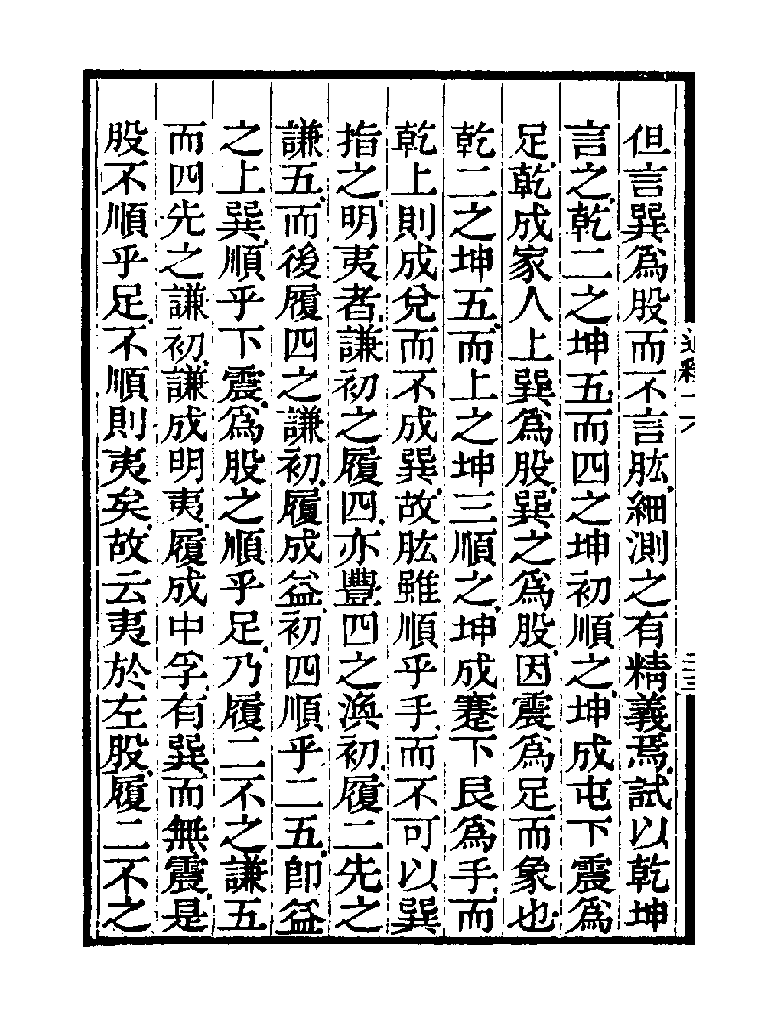 但言巽爲股而不言肱細測之有精義焉試以乾坤
言之乾二之坤五而四之坤初順之坤成屯下震爲
足乾成家人上巽爲股巽之爲股因震爲足而象也
乾二之坤五而上之坤三順之坤成蹇下艮爲手而
乾上則成兌而不成巽故肱雖順乎手而不可以巽
指之明夷者謙初之履四亦豐四之渙初履二先之
謙五而後履四之謙初履成益初四順乎二五卽益
之上巽順乎下震爲股之順乎足乃履二不之謙五
而四先之謙初謙成明夷履成中孚有巽而無震是
股不順乎足不順則夷矣故云夷於左股履二不之